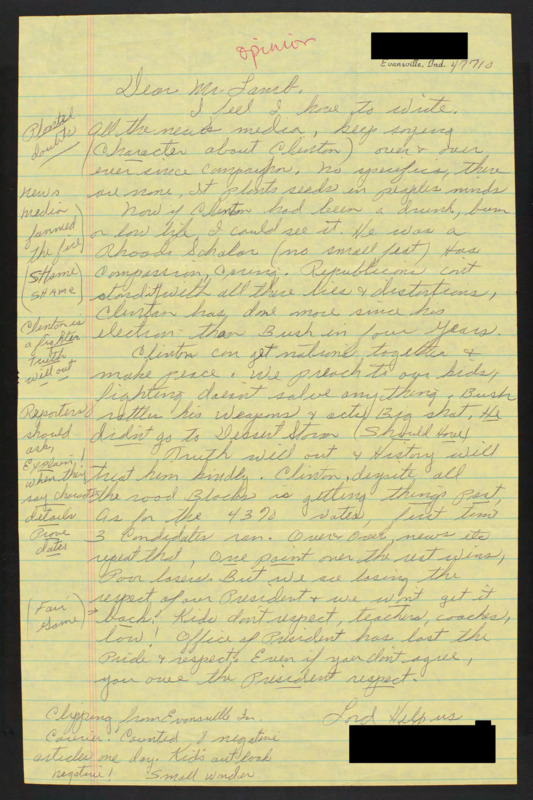 opinion
Evansville, Ind. 47710
Dear Mr. Lamb,
I feel I have to write.
All the news media, keep saying
(Character about Clinton) over & over
ever since campaign. No specifics, there
are none, It plants seeds in peoples minds
Now if Clinton had been a drunk, bum
or low life I could see it. He was a
Rhoads Scholar (no small feat) Has
Compassion, Caring. Republicans can't
stand it with all there lies & distortions,
Clinton has done more since his
election than Bush in four years.
Clinton can get nations together &
make peace. We preach to our kids,
fighting doesn't solve anything. Bush
rattles his weapons & acts Big shot, He
didn't go to Dessert Storm (Should Have)
Truth will out & History will
treat him kindly. Clinton, dispite all
the road Blocks is getting things past,
As for the 43% votes, first time
3 Candidates ran. Over & Over, news etc
repeat that, One point over the rest wins,
Poor losers. But we are losing the
respect of our President & we won't get it
back! Kids don't respect, teachers, coaches,
law! Office of President has lost the
Pride & respect. Even if you don't agree,
you owe the President respect.
Lord Help us
Planted
doubts
News
media
fanned
the fire
(SHame
SHAME)
Clinton is
a fighter
truth
will out
Reporters
should
ask,
Explain!
when they
say character
details
Prove
dates
(Fair
Game)
Clipping from Evansville In.
Courier. Counted 8 negative
articles one day. Kids outlook
negative! Small wonder